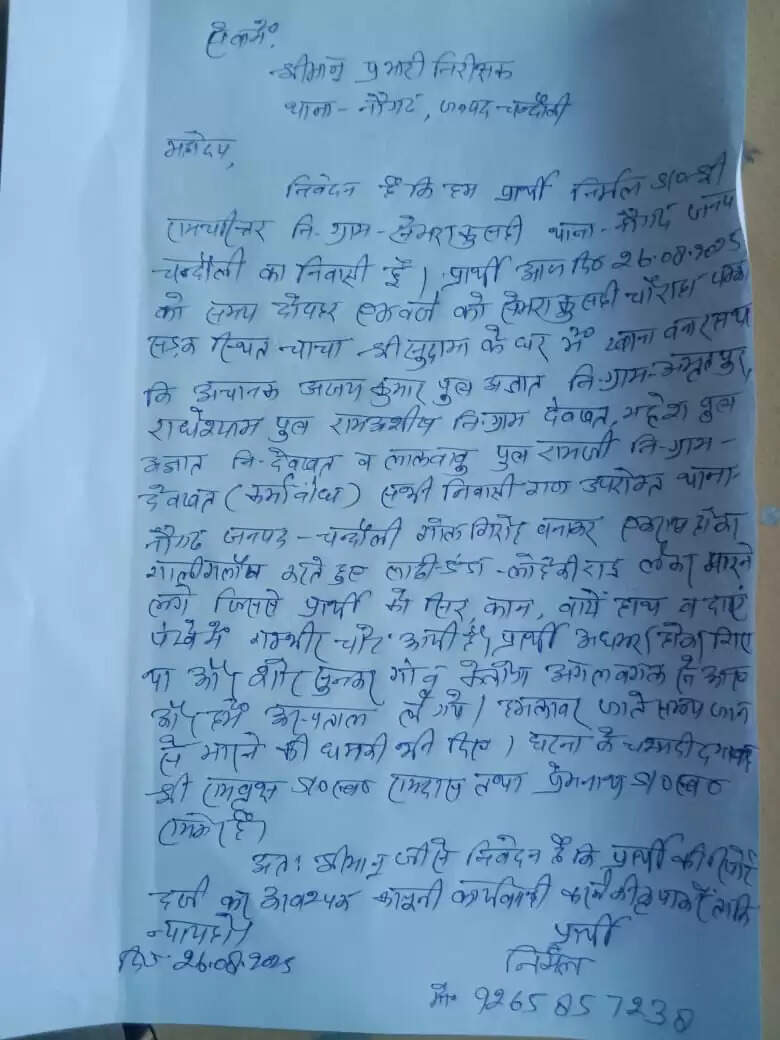 सेवा में,
श्रीमान् प्रभारी निरीक्षक
थाना - नौगढ़, जनपद - चन्दौली
महोदय,
निवेदन है कि हम प्रार्थी निर्मल S/० श्री
नि. ग्राम - सेमरा कुसही थाना - नौगढ़ जनपद
चन्दौली का निवासी हूँ। प्रार्थी आज दि० 26.08.2025
को समय दोपहर को सेमरा कुसही चौराहा
सड़क स्थित चाचा श्री सुदामा के घर में खाना बना रहा था
कि अचानक अजय कुमार पुत्र अज्ञात नि. ग्राम -
राधेश्याम पुत्र रामअशीष नि. ग्राम देवखत, महेश पुत्र
अज्ञात नि - देवखत व लालबाबू पुत्र रामजी नि. ग्राम -
देवखत ( ) सभी निवासी गण उपरोक्त थाना -
नौगढ़ जनपद - चन्दौली गोल गिरोह बनाकर एक राय होकर
गाली गलौज करते हुए लाठी - डंडा - लोहे की राड लेकर मारने
लगे जिससे प्रार्थी के सिर, कान, बायें हाथ व दाएं
में गम्भीर चोट आयी है। प्रार्थी अधमरा होकर गिर
था और शोर सुनकर गांव के लोग अगल बगल से आए
और हमें अस्पताल ले गये। हमलावर जाते समय जान
से मारने की धमकी भी दिए। घटना के चश्मदीद गवाह
श्री रामवृक्ष S/० स्व० रामदास तथा प्रेमनाथ S/० स्व०
है।
अतः श्रीमान् जी से निवेदन है कि प्रार्थी की रिपोर्ट
दर्ज कर आवश्यक कानूनी कार्यवाही करने की कृपा करें ताकि
न्याय हो।
प्रार्थी
दि० - 26.08.2025
निर्मल
मो० 9265857238